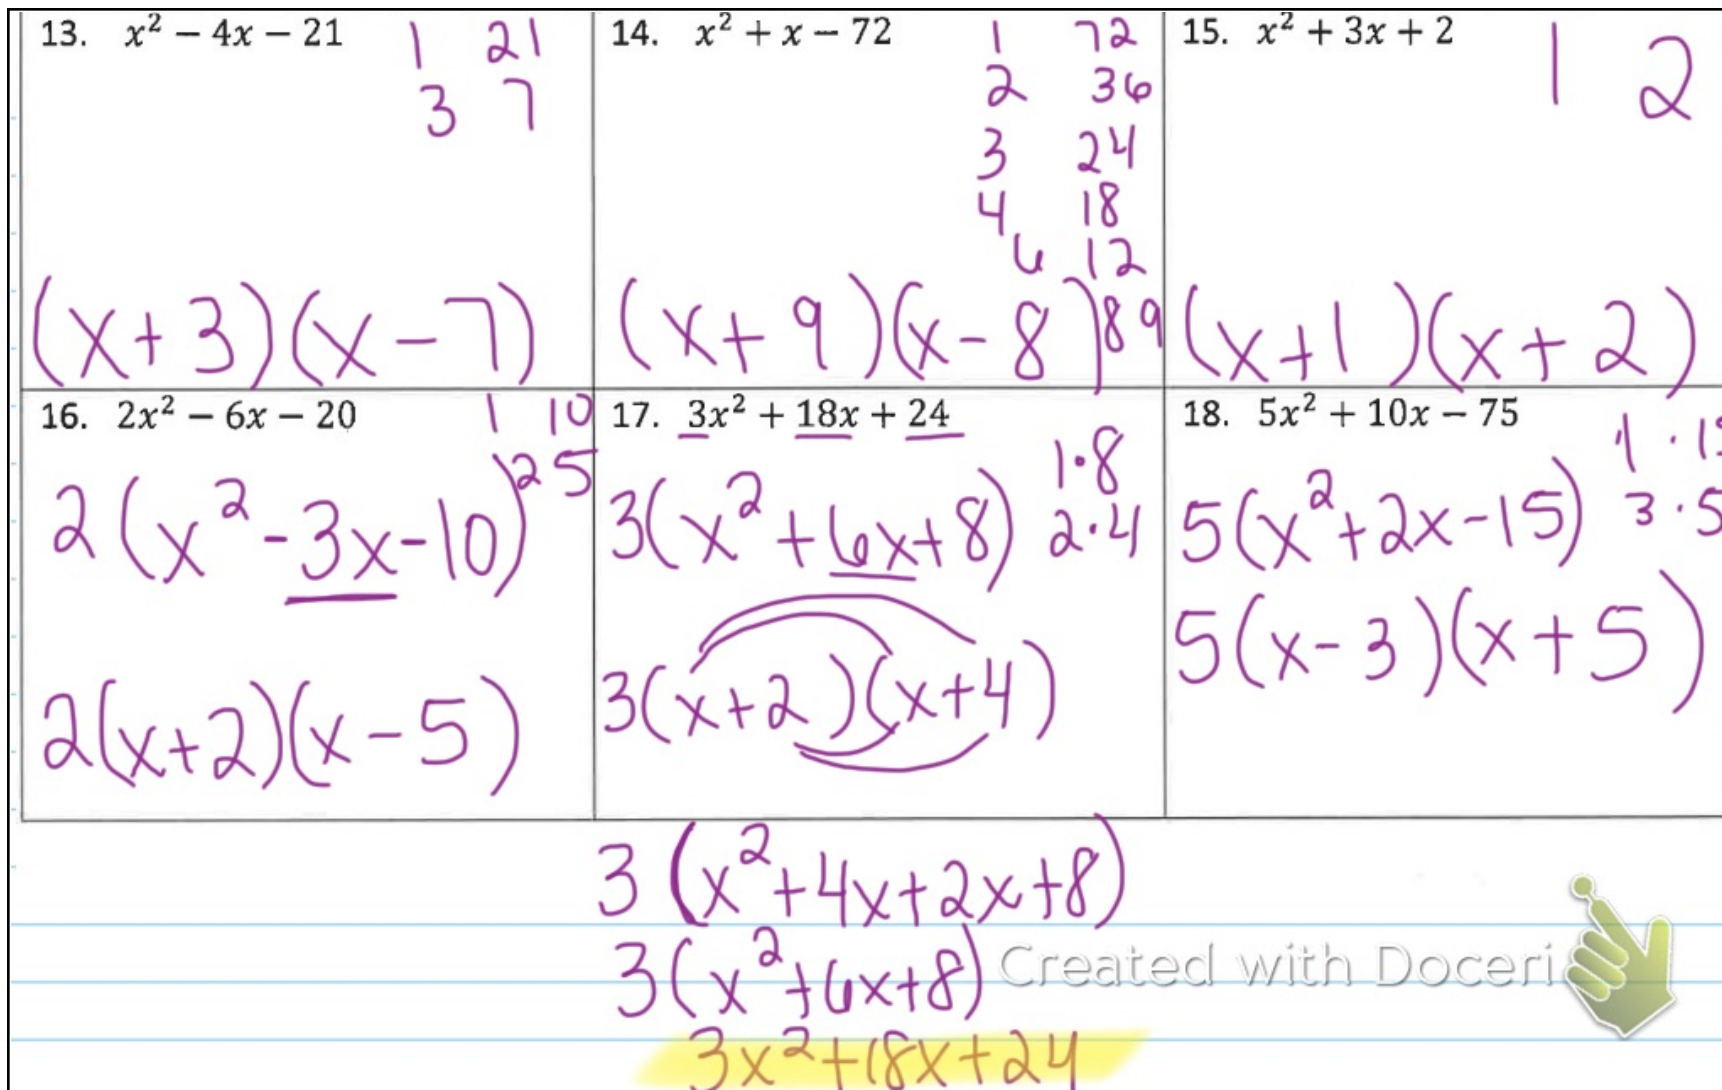 13. x² − 4x − 21
1 21
3 7
(x+3)(x−7)
14. x² + x − 72
1 72
2 36
3 24
4 18
6 12
8 9
(x+9)(x−8)
15. x² + 3x + 2
1 2
(x+1)(x+2)
16. 2x² − 6x − 20
1 10
2 5
2(x²−3x−10)
2(x+2)(x−5)
17. 3x² + 18x + 24
1·8
2·4
3(x²+6x+8)
3(x+2)(x+4)
18. 5x² + 10x − 75
1·15
3·5
5(x²+2x−15)
5(x−3)(x+5)
3(x²+4x+2x+8)
3(x²+6x+8)
3x²+18x+24
Created with Doceri